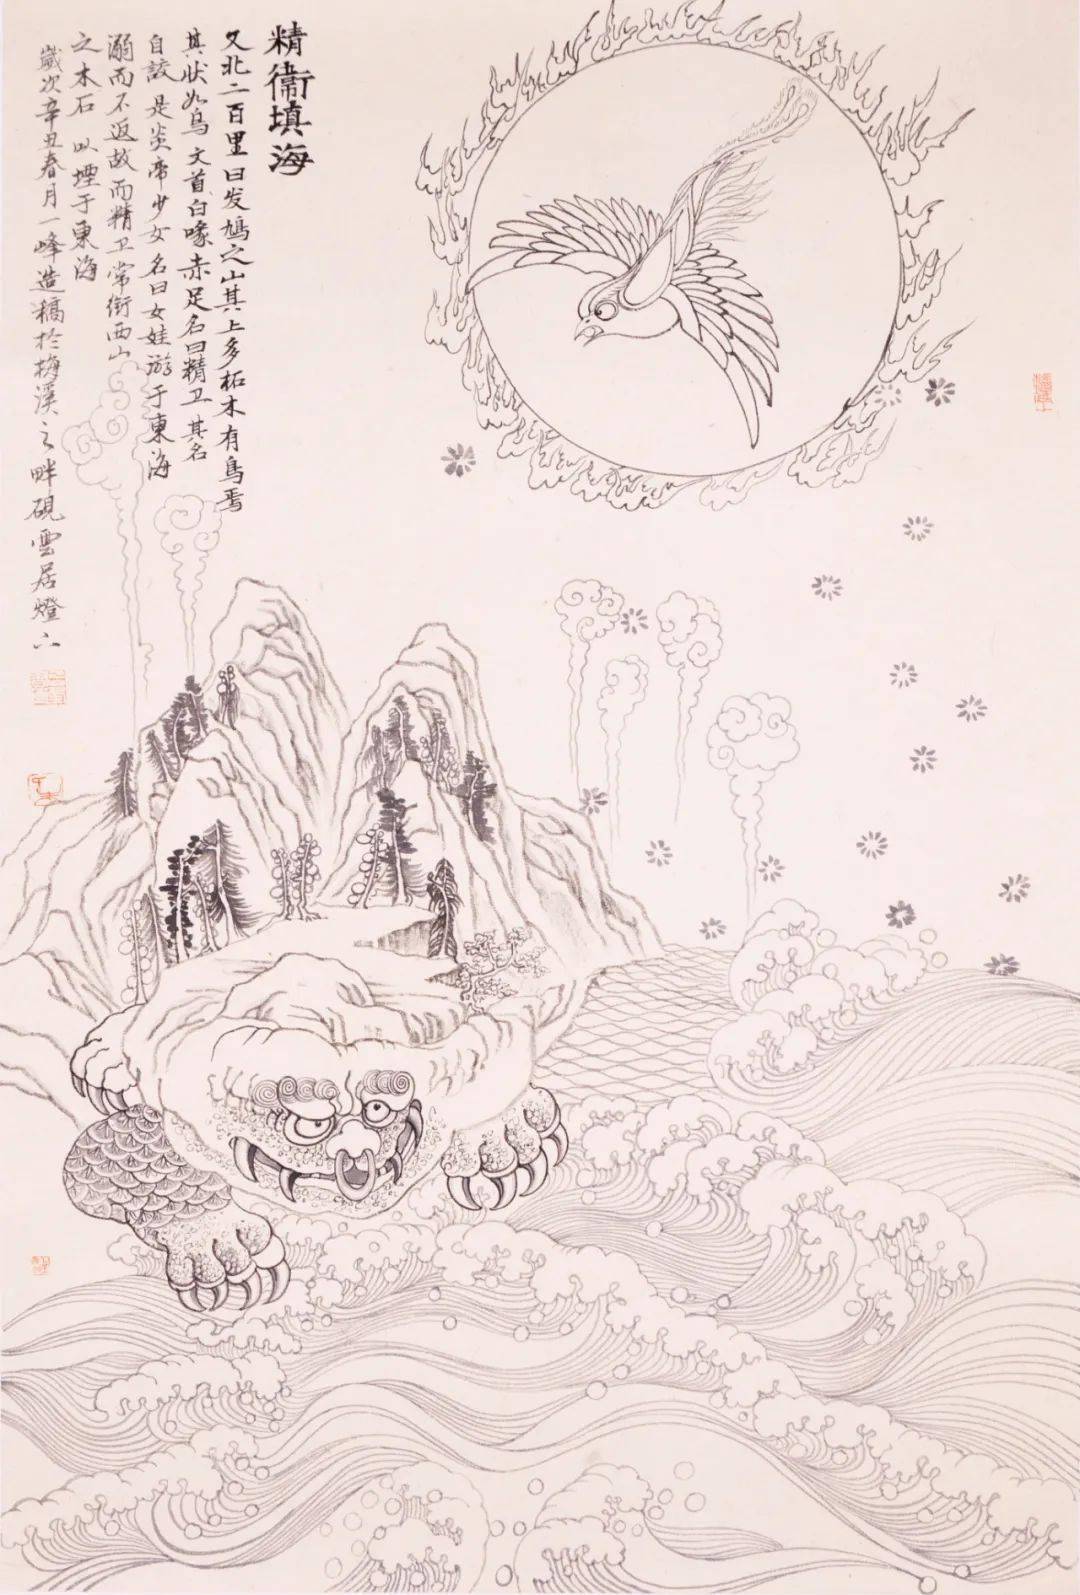 精衛填海
又北二百里曰发鳩之山其上多柘木有鳥焉
其状如烏文首白喙赤足名曰精卫其名
自詨是炎帝少女名曰女娃游于東海
溺而不返故而精卫常衔西山
之木石以堙于東海
歲次辛丑春月一峰造稿於梅溪之畔硯雲居燈下